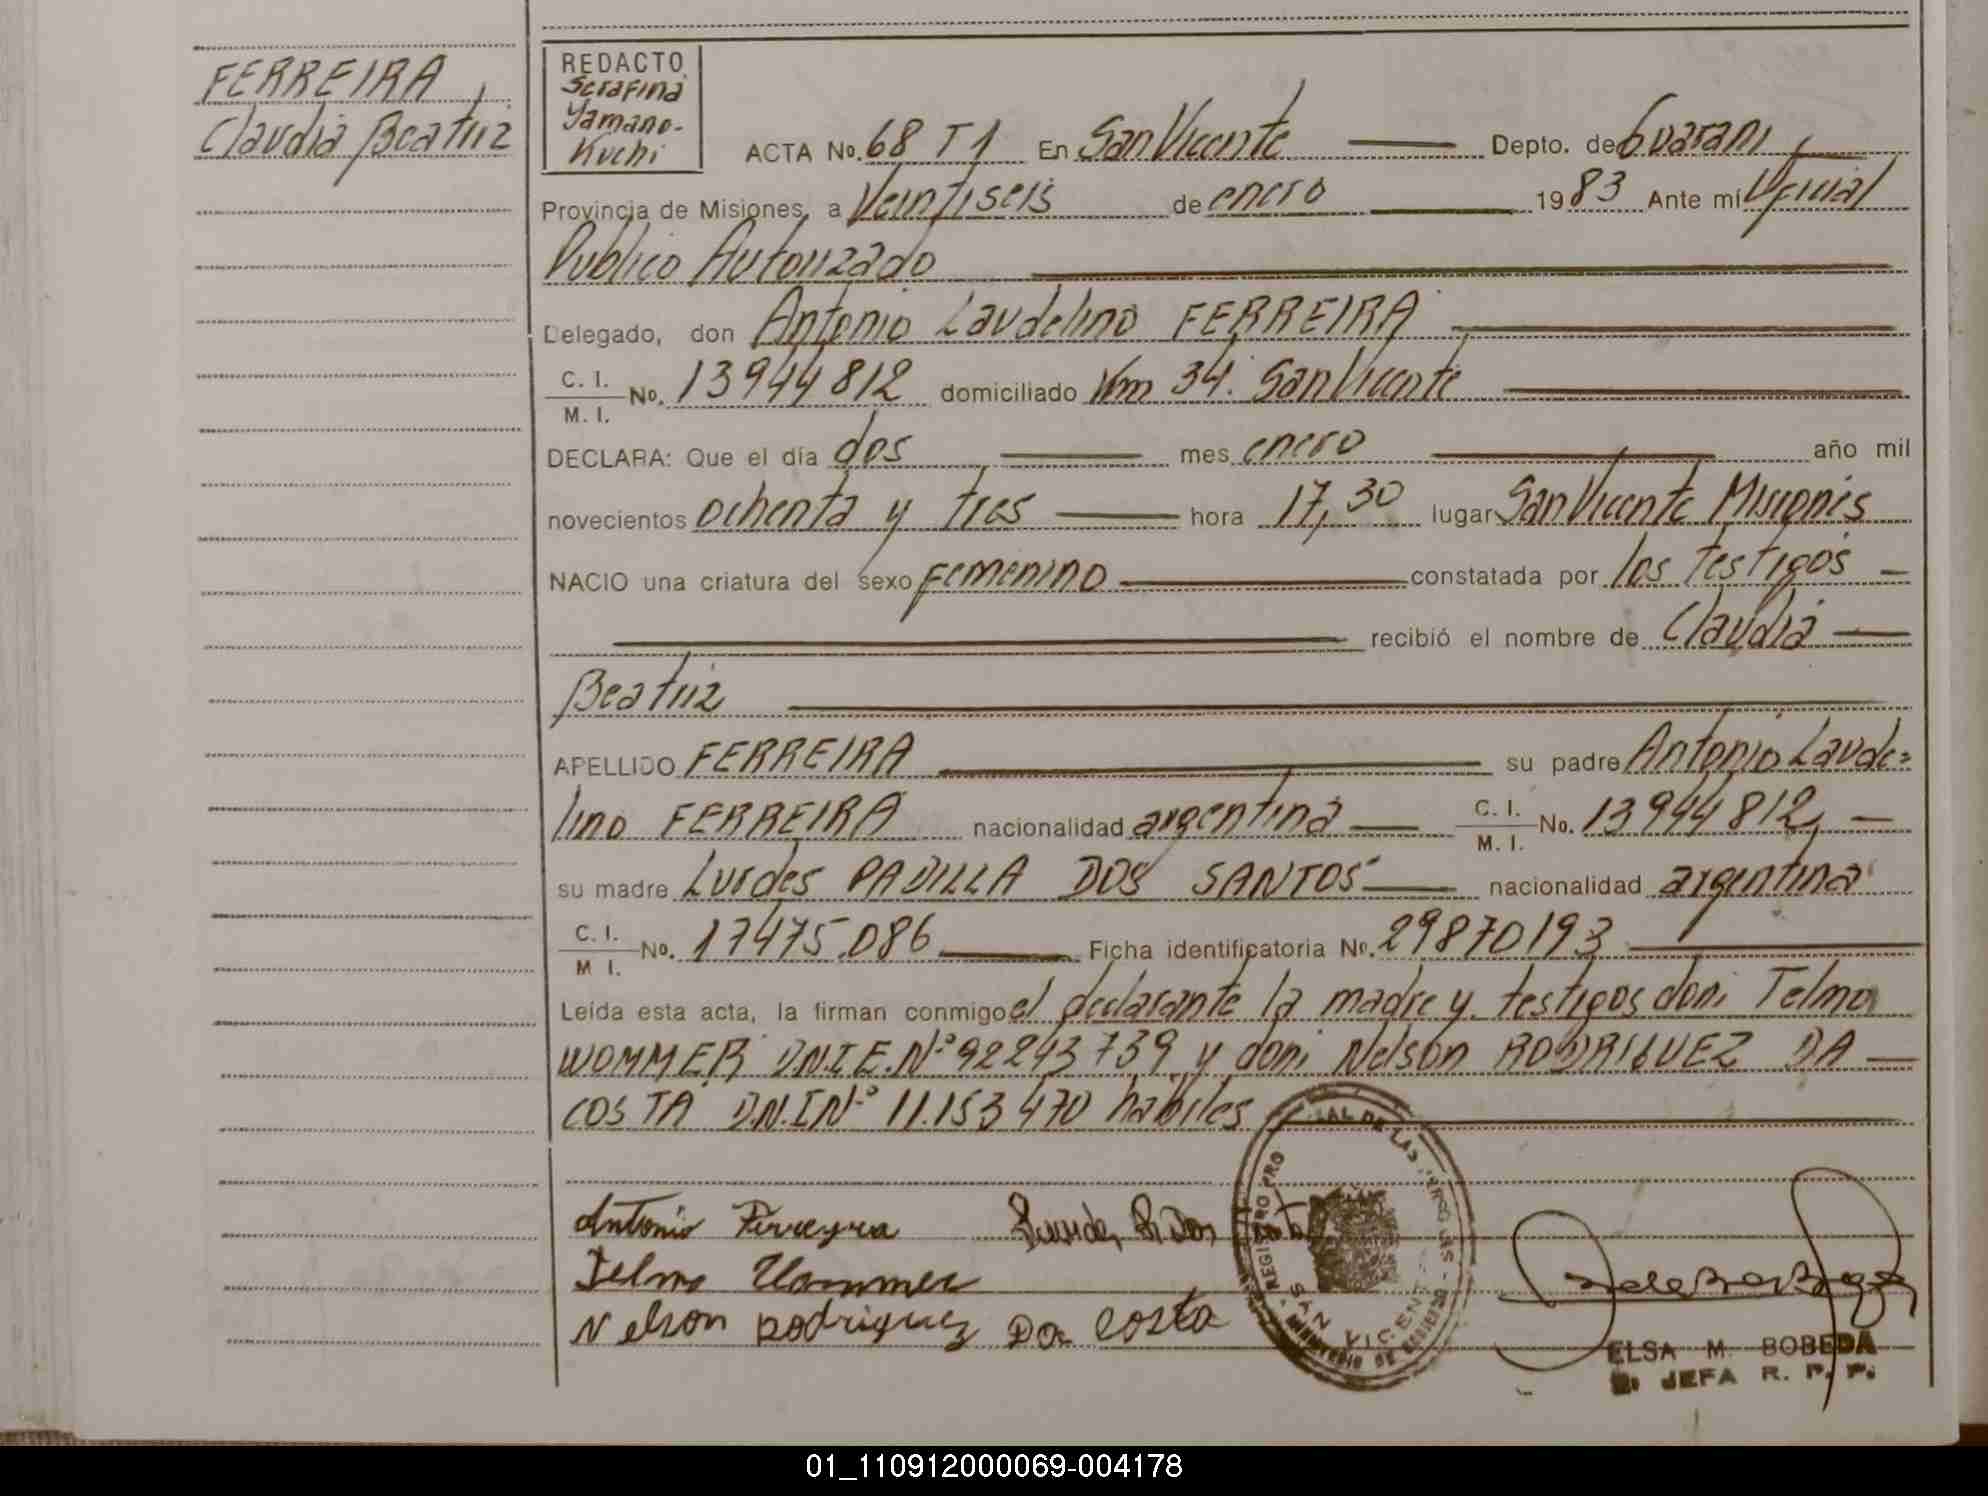 FERREIRA
Claudia Beatriz
REDACTO
Serafina
Yamano-
Kuchi
ACTA No. 68 T1 En San Vicente Depto. de Guarani
Provincia de Misiones, a Veintiseis de enero 1983 Ante mí Oficial
Publico Autorizado
Delegado, don Antonio Laudelino FERREIRA
C. I.
M. I. No. 13944812 domiciliado Km 34. San Vicente
DECLARA: Que el día dos mes enero año mil
novecientos ochenta y tres hora 17,30 lugar San Vicente Misiones
NACIO una criatura del sexo Femenino constatada por los testigos
recibió el nombre de Claudia
Beatriz
APELLIDO FERREIRA su padre Antonio Laude=
lino FERREIRA nacionalidad argentina C. I.
M. I. No. 13944812
su madre Lurdes PADILLA DOS SANTOS nacionalidad argentina
C. I.
M I. No. 17475.086 Ficha identificatoria No. 29870193
Leída esta acta, la firman conmigo el declarante la madre y testigos doni Telmo
WOMMER D.N.I.E.Nº 92243739 y doni Nelson RODRIGUEZ DA
COSTA D.N.I Nº 11.153470 habiles
Antonio Ferreyra
Telmo Wommer
Nelson Rodriguez Da Costa
REGISTRO PRO
DE LAS
SAN VICENTE
MINISTERIO DE GOBIERNO
ELSA M. BOBEDA
JEFA R. P. P.
01_110912000069-004178